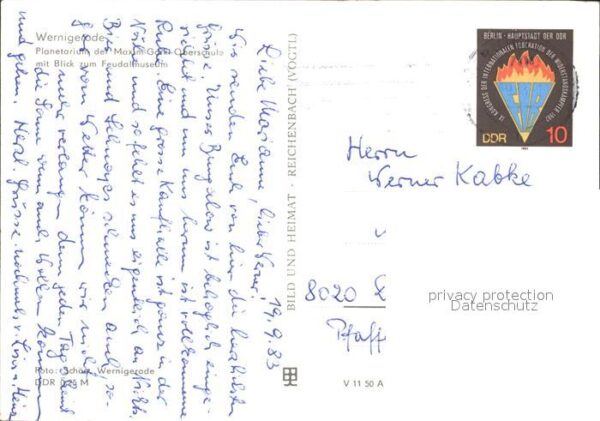 Wernigerode
Planetarium der Maxim-Gorki-Oberschule
mit Blick zum Feudalmuseum
19.9.83
Liebe Marianne, lieber Werner,
Wir senden Euch von hier die herzlichsten
Grüsse. Unser Bungalow ist behaglich einge-
richtet und um uns herum ist vollkommene
Ruhe. Eine grosse Kaufhalle ist ganz in der
Nähe und so fehlt es uns eigentlich an Nichts.
Bier und Schnaps schmecken auch, so-
gar vom Wetter können wir nicht
mehr verlangen, denn jeden Tag scheint
die Sonne, wenn auch Wolken kommen
und gehen. Herzl. Grüsse nochmals v.
Foto: Schön, Wernigerode
DDR M
BILD UND HEIMAT · REICHENBACH (VOGTL)
V 11 50 A
BERLIN - HAUPTSTADT DER DDR
IX. KONGRESS DER INTERNATIONALEN FÖDERATION DER WIDERSTANDSKÄMPFER 1982
FIR
DDR 10
Herrn
Werner Kabke
8020
privacy protection
Datenschutz